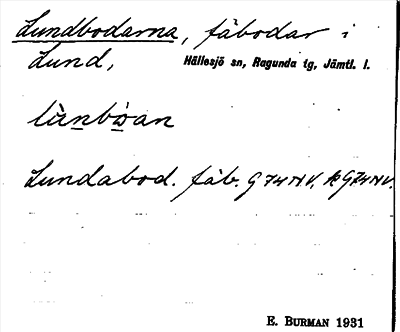 Lundbodarna, fäbodar i
Lund, Hällesjö sn, Ragunda tg, Jämtl. l.
Lundabod. fäb. G 74 NV.
E. BURMAN 1931